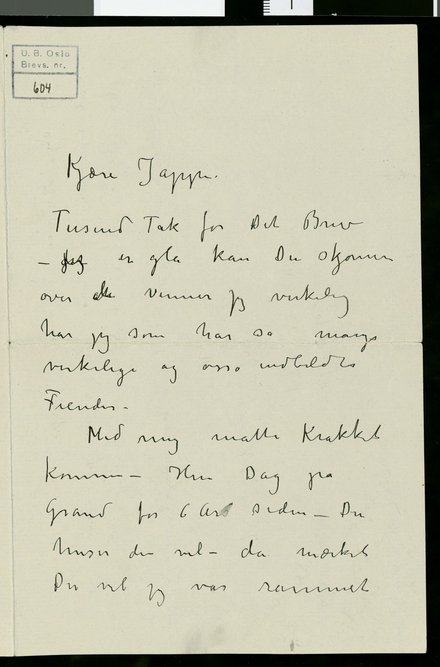 U. B. Oslo
Brevs. nr.
604
Kjære Jappe.
Tusend Tak for Dit Brev
– jeg er gla kan Du skjønne
over alle Venner jeg virkelig
har jeg som har så mange
virkelige og også indbildte
Fiender –
Med mig måtte Krakket
komme – Hin Dag på
Grand for 6 År siden – Du
huser den vel – da mærket
Du vel jeg var rammet